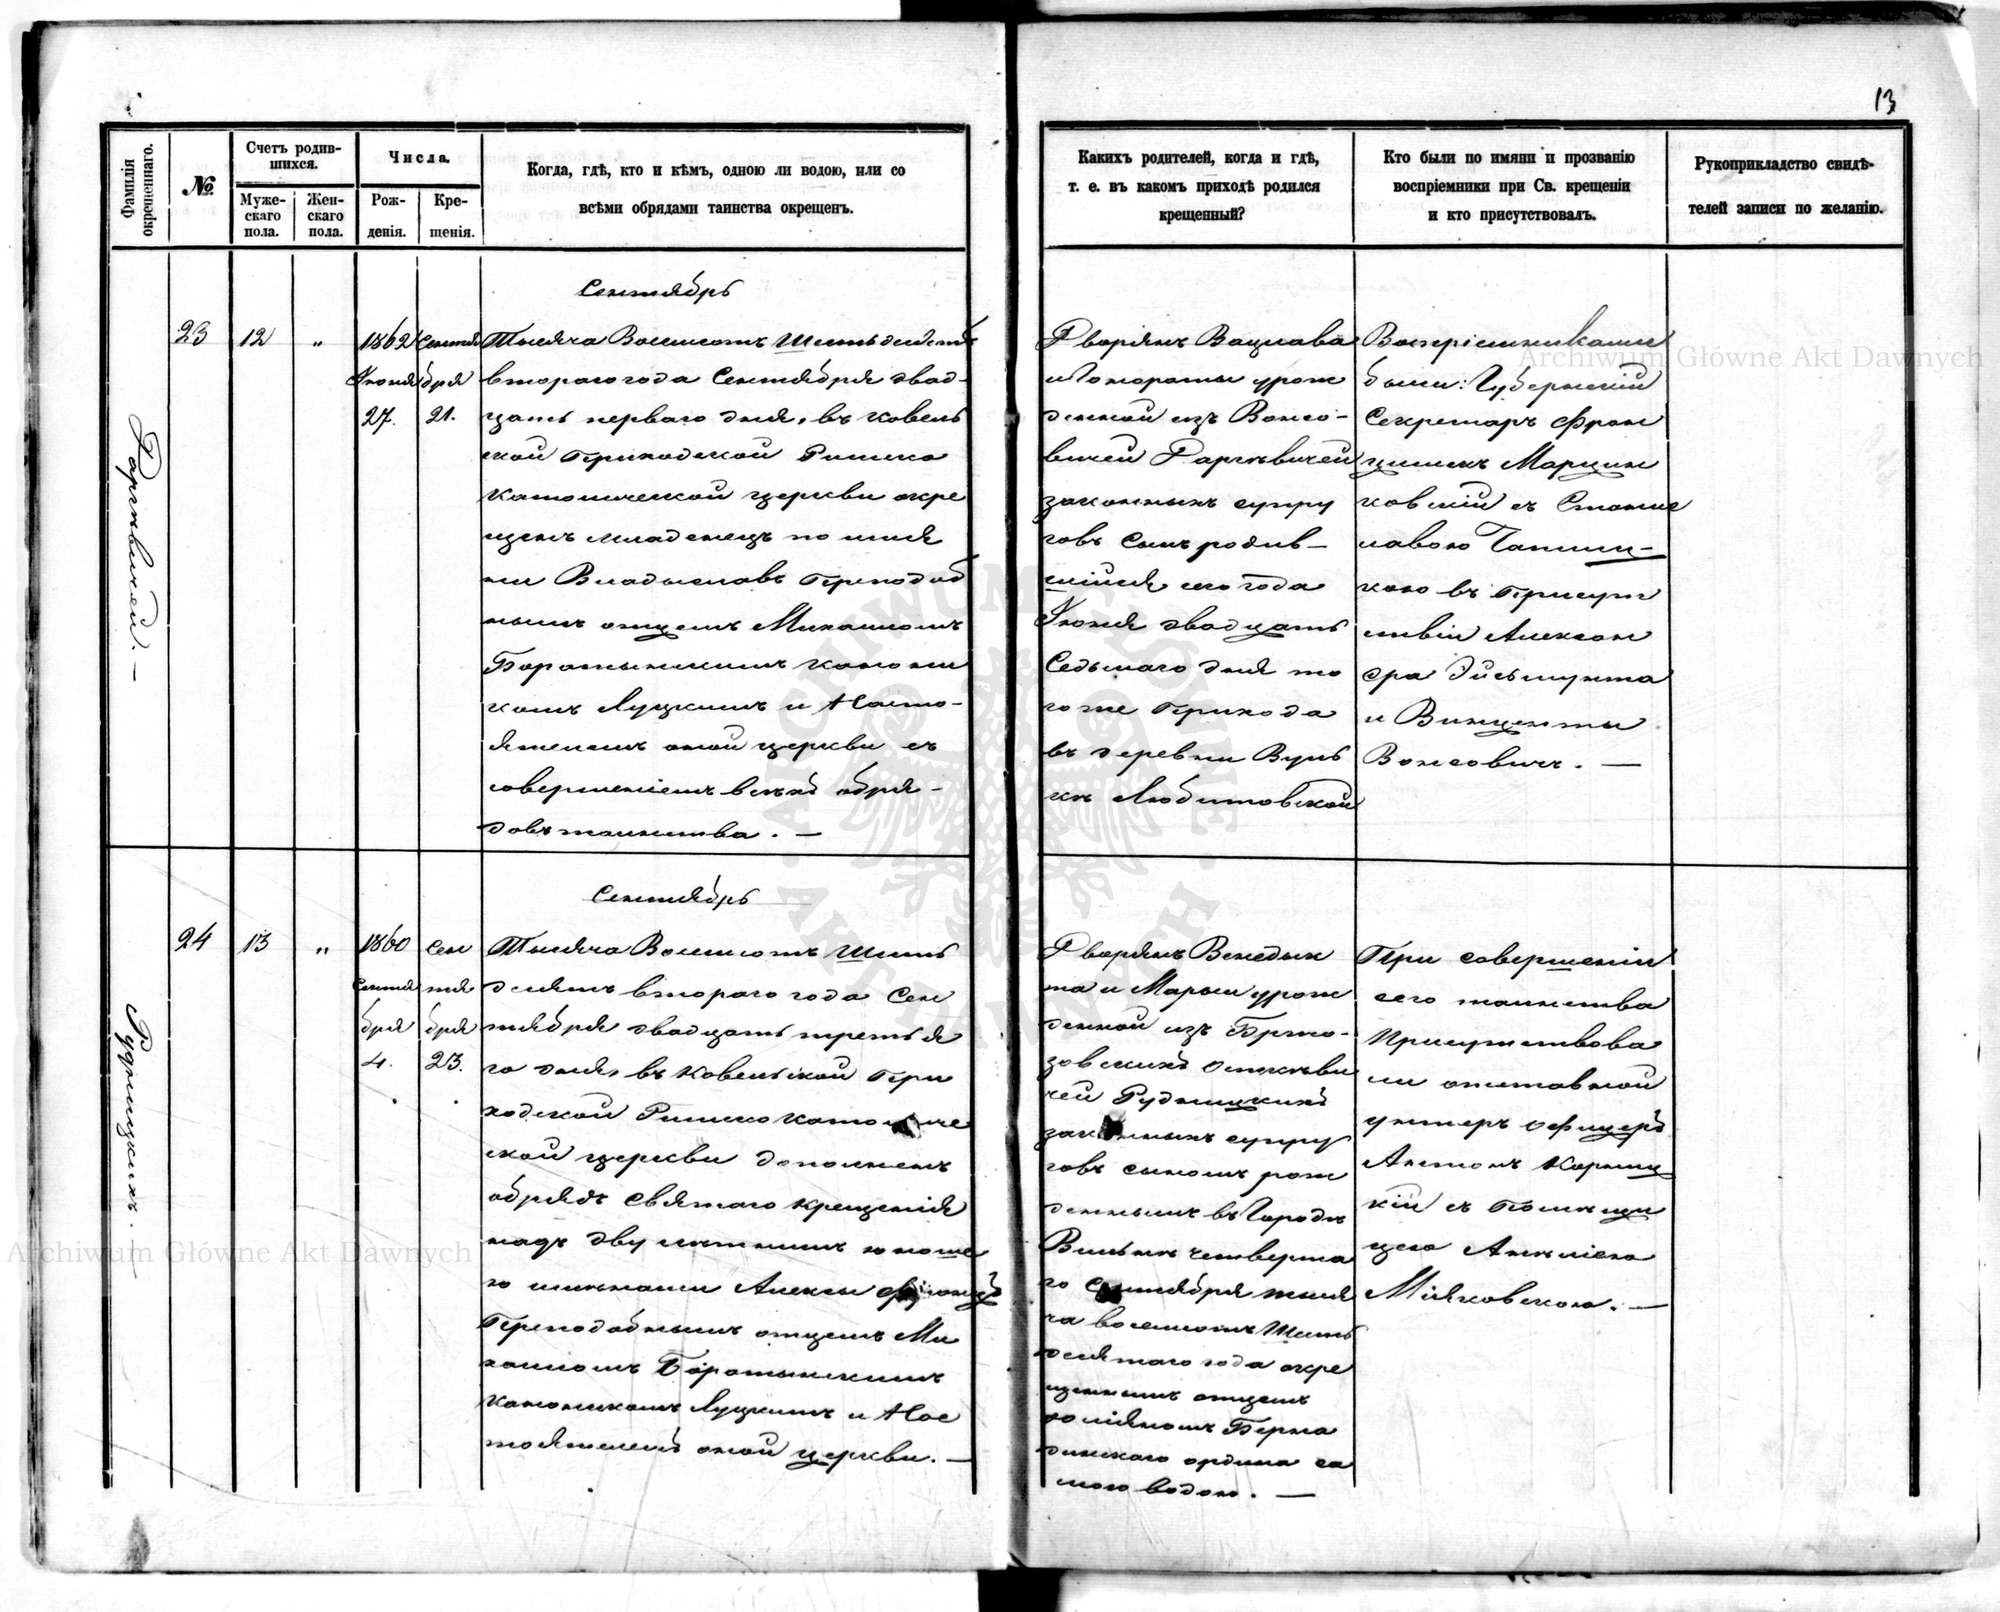 13
Фамилія окрещеннаго.
№
Счетъ родив-
шихся.
Муже-
скаго
пола.
Жен-
скаго
пола.
Числа.
Рож-
денія.
Кре-
щенія.
Когда, гдѣ, кто и кѣмъ, одною ли водою, или со
всѣми обрядами таинства окрещенъ.
Какихъ родителей, когда и гдѣ,
т. е. въ какомъ приходѣ родился
крещенный?
Кто были по имяни и прозванію
воспріемники при Св. крещеніи
и кто присутствовалъ.
Рукоприкладство свидѣ-
телей записи по желанію.
23
12
„
1862
Іюня
27.
Сентя
бря
21.
Сентябрь
Тысяча Восемсотъ Шестьдесятъ
втораго года Сентября двад-
цать перваго дня, въ Ковель
ской Приходской Римско
Католической церкви окре
щенъ младенецъ по имя
ни Владыславъ Преподоб
нымъ отцемъ Михаиломъ
Баратынскимъ Канони
комъ Луцкимъ и Насто-
ятелемъ оной церкви съ
совершеніемъ всѣхъ обря-
довъ таинства. —
Дворянъ Вацлава
и Гонораты урож
денной изъ Вонсо-
вичей
законныхъ супру
говъ сынъ родив-
шійся сего года
Іюня двадцать
Седьмаго дня то
гоже Прихода
въ деревни Вуль
къ Любитовской
Воспріемниками
были: Губернскій
Секретарь Фран
цишекъ Марцин
ковскій съ Станис
лавою
кою въ Присут
ствіи Алексан
дра Эйсмунта
и Винценты
Вонсовичъ. —
24
13
„
1860
Сентя
бря
4.
Сен
тя
бря
23.
Рудницкихъ. —
Сентябрь
Тысяча Восемсотъ Шесть
десятъ втораго года Сен
тября двадцать третья
го дня, въ Ковельской При
ходской Римско католиче
ской церкви дополненъ
обрядъ святаго крещенія
надъ двулѣтнимъ юноше
ю имянами Алексы
Преподобнымъ отцемъ Ми
хаиломъ Баратынскимъ
Каноникомъ Луцкимъ и Нас
тоятелемъ оной церкви. —
Дворянъ Венедык
та и Марыи урож
денной изъ Бржо-
зовскихъ
чей Рудницкихъ
законныхъ супру
говъ сыномъ рож
деннымъ въ Городѣ
Вильнѣ четверта
го Сентября тыся
ча восемсотъ Шесть
десятаго года окре
щеннымъ отцемъ
Юліяномъ Берна
динскаго ордина са
мою водою. —
При совершеніи
сего таинства
Присутствова
ли отставной
унтеръ офицеръ
Антонъ Корниц
кій съ Помѣщи
цею Анѣлiею
Міяковскою. —
Archiwum Główne Akt Dawnych
Archiwum Główne Akt Dawnych
ARCHIWUM GŁÓWNE
AKT DAWNYCH